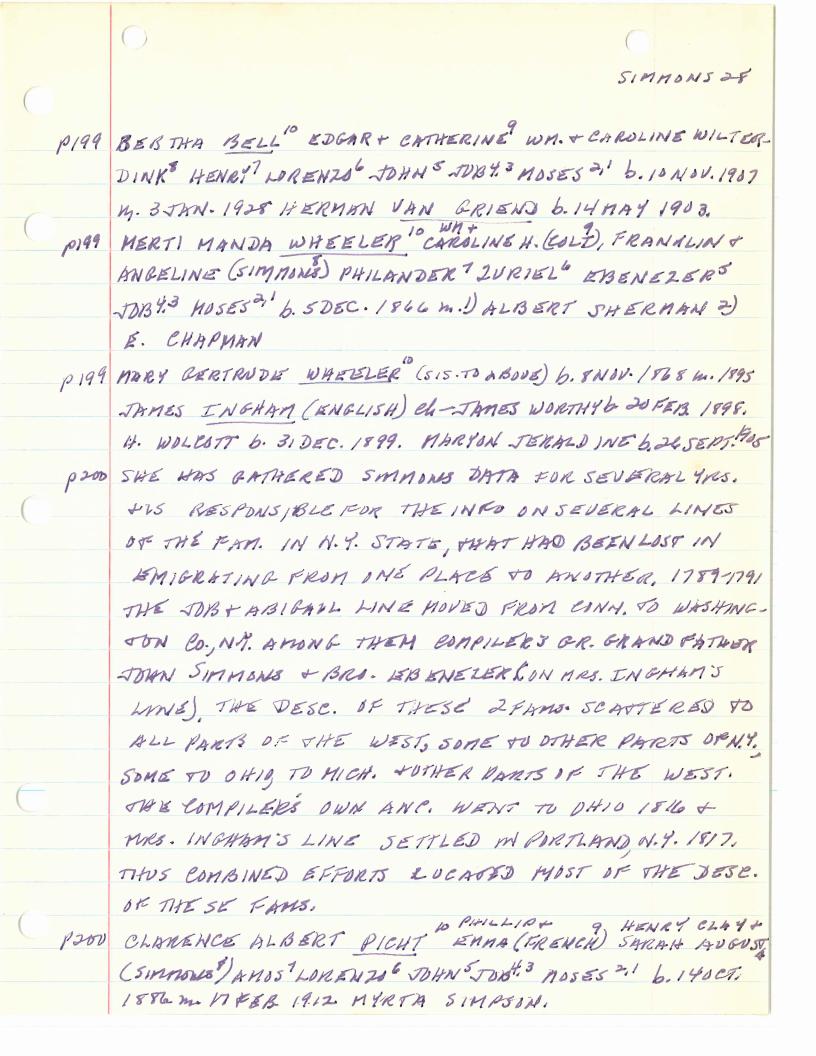 SIMMONS 28
p199 BERTHA BELL¹⁰ EDGAR + CATHERINE⁹ WM. + CAROLINE WILTER-
DINK⁸ HENRY⁷ LORENZO⁶ JOHN⁵ JOB⁴·³ MOSES²,¹ b. 10 NOV. 1907
m. 3 JAN. 1928 HERMAN VAN GRIEND b. 14 MAY 1903.
p199 MERTI MANDA WHEELER¹⁰ WM + CAROLINE H. (COLT)⁹, FRANKLIN +
ANGELINE (SIMMONS⁸) PHILANDER⁷ ZURIEL⁶ EBENEZER⁵
JOB⁴·³ MOSES²,¹ b. 5 DEC. 1866 m. 1) ALBERT SHERMAN 2)
E. CHAPMAN
p199 MARY GERTRUDE WHEELER¹⁰ (SIS. TO ABOVE) b. 8 NOV. 1868 m. 1895
JAMES INGHAM (ENGLISH) ch - JAMES WORTHY b 20 FEB 1898.
H. WOLCOTT b. 31 DEC. 1899. MARYON JERALDINE b. 26 SEPT. 1905
p200 SHE HAS GATHERED SIMMONS DATA FOR SEVERAL YRS.
+ IS RESPONSIBLE FOR THE INFO ON SEVERAL LINES
OF THE FAM. IN N.Y. STATE, THAT HAD BEEN LOST IN
EMIGRATING FROM ONE PLACE TO ANOTHER. 1789-1791
THE JOB + ABIGAIL LINE MOVED FROM CONN. TO WASHING-
TON CO., N.Y. AMONG THEM COMPILER'S GR. GRANDFATHER
JOHN SIMMONS + BRO. EBENEZER (ON MRS. INGHAM'S
LINE), THE DESC. OF THESE 2 FAMS. SCATTERED TO
ALL PARTS OF THE WEST, SOME TO OTHER PARTS OF N.Y.,
SOME TO OHIO, TO MICH. + OTHER PARTS OF THE WEST.
THE COMPILER'S OWN ANC. WENT TO OHIO 1816 +
MRS. INGHAM'S LINE SETTLED IN PORTLAND, N.Y. 1817.
THUS COMBINED EFFORTS LOCATED MOST OF THE DESC.
OF THESE FAMS.
p200 CLARENCE ALBERT PICHT¹⁰ PHILLIP + EMMA (FRENCH)⁹ HENRY CLAY + SARAH AUGUSTA
(SIMMONS⁸) AMOS⁷ LORENZO⁶ JOHN⁵ JOB⁴·³ MOSES²,¹ b. 14 OCT.
1886 m. 17 FEB 1912 MYRTA SIMPSON.